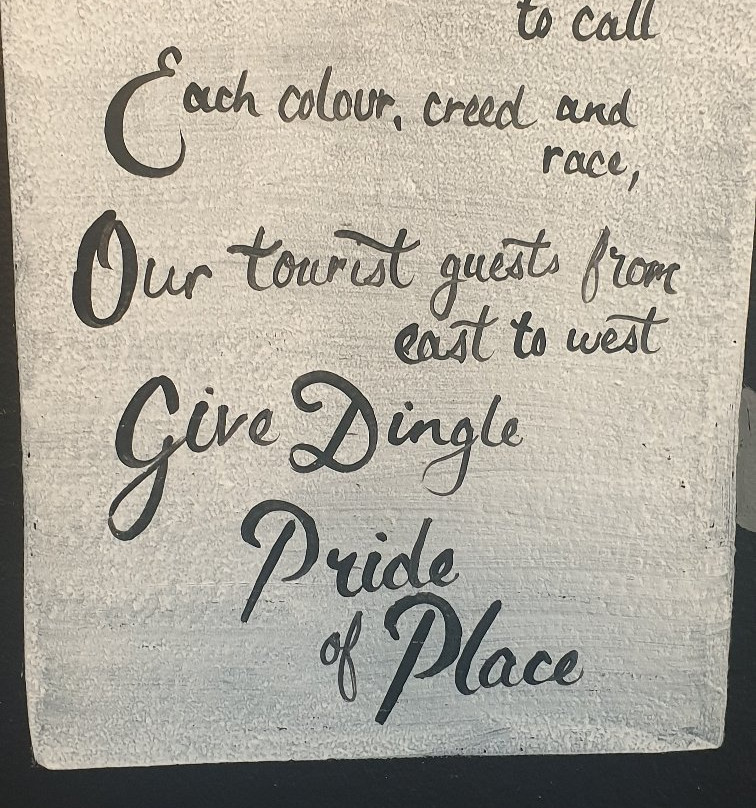 to call
Each colour, creed and
race,
Our tourist guests from
east to west
Give Dingle
Pride
of Place